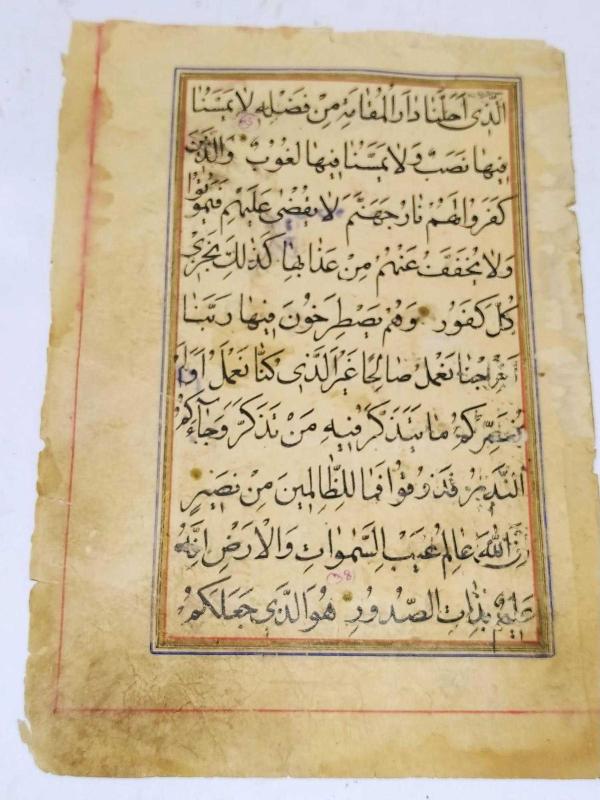 الَّذِي اَحَلَّنَا دَارَ الْمُقَامَةِ مِنْ فَضْلِهِ لَا يَمَسُّنَا
فِيهَا نَصَبٌ وَلَا يَمَسُّنَا فِيهَا لُغُوبٌ وَالَّذِينَ
كَفَرُوا لَهُمْ نَارُ جَهَنَّمَ لَا يُقْضَى عَلَيْهِمْ فَيَمُوتُوا
وَلَا يُخَفَّفُ عَنْهُمْ مِنْ عَذَابِهَا كَذَلِكَ نَجْزِي
كُلَّ كَفُورٍ وَهُمْ يَصْطَرِخُونَ فِيهَا رَبَّنَا
اَخْرِجْنَا نَعْمَلْ صَالِحًا غَيْرَ الَّذِي كُنَّا نَعْمَلُ اَوَلَمْ
نُعَمِّرْكُمْ مَا يَتَذَكَّرُ فِيهِ مَنْ تَذَكَّرَ وَجَاءَكُمُ
النَّذِيرُ فَذُوقُوا فَمَا لِلظَّالِمِينَ مِنْ نَصِيرٍ
اِنَّ اللهَ عَالِمُ غَيْبِ السَّمٰوَاتِ وَالْاَرْضِ اِنَّهُ
عَلِيمٌ بِذَاتِ الصُّدُورِ هُوَ الَّذِي جَعَلَكُمْ